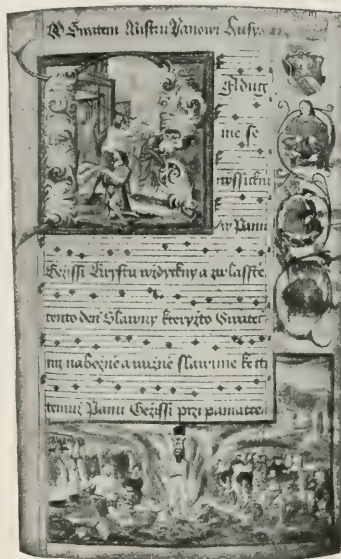 O Swatem Mistru Janowi Husy
Radug
me se
wssickni
w Panu
Gezissi Krystu wzdycky a zwlasste
tento den Slawny kteryžto Swatec
nabožně a wažně slawime ke cti
temuž Panu Gezissi przi pamatce